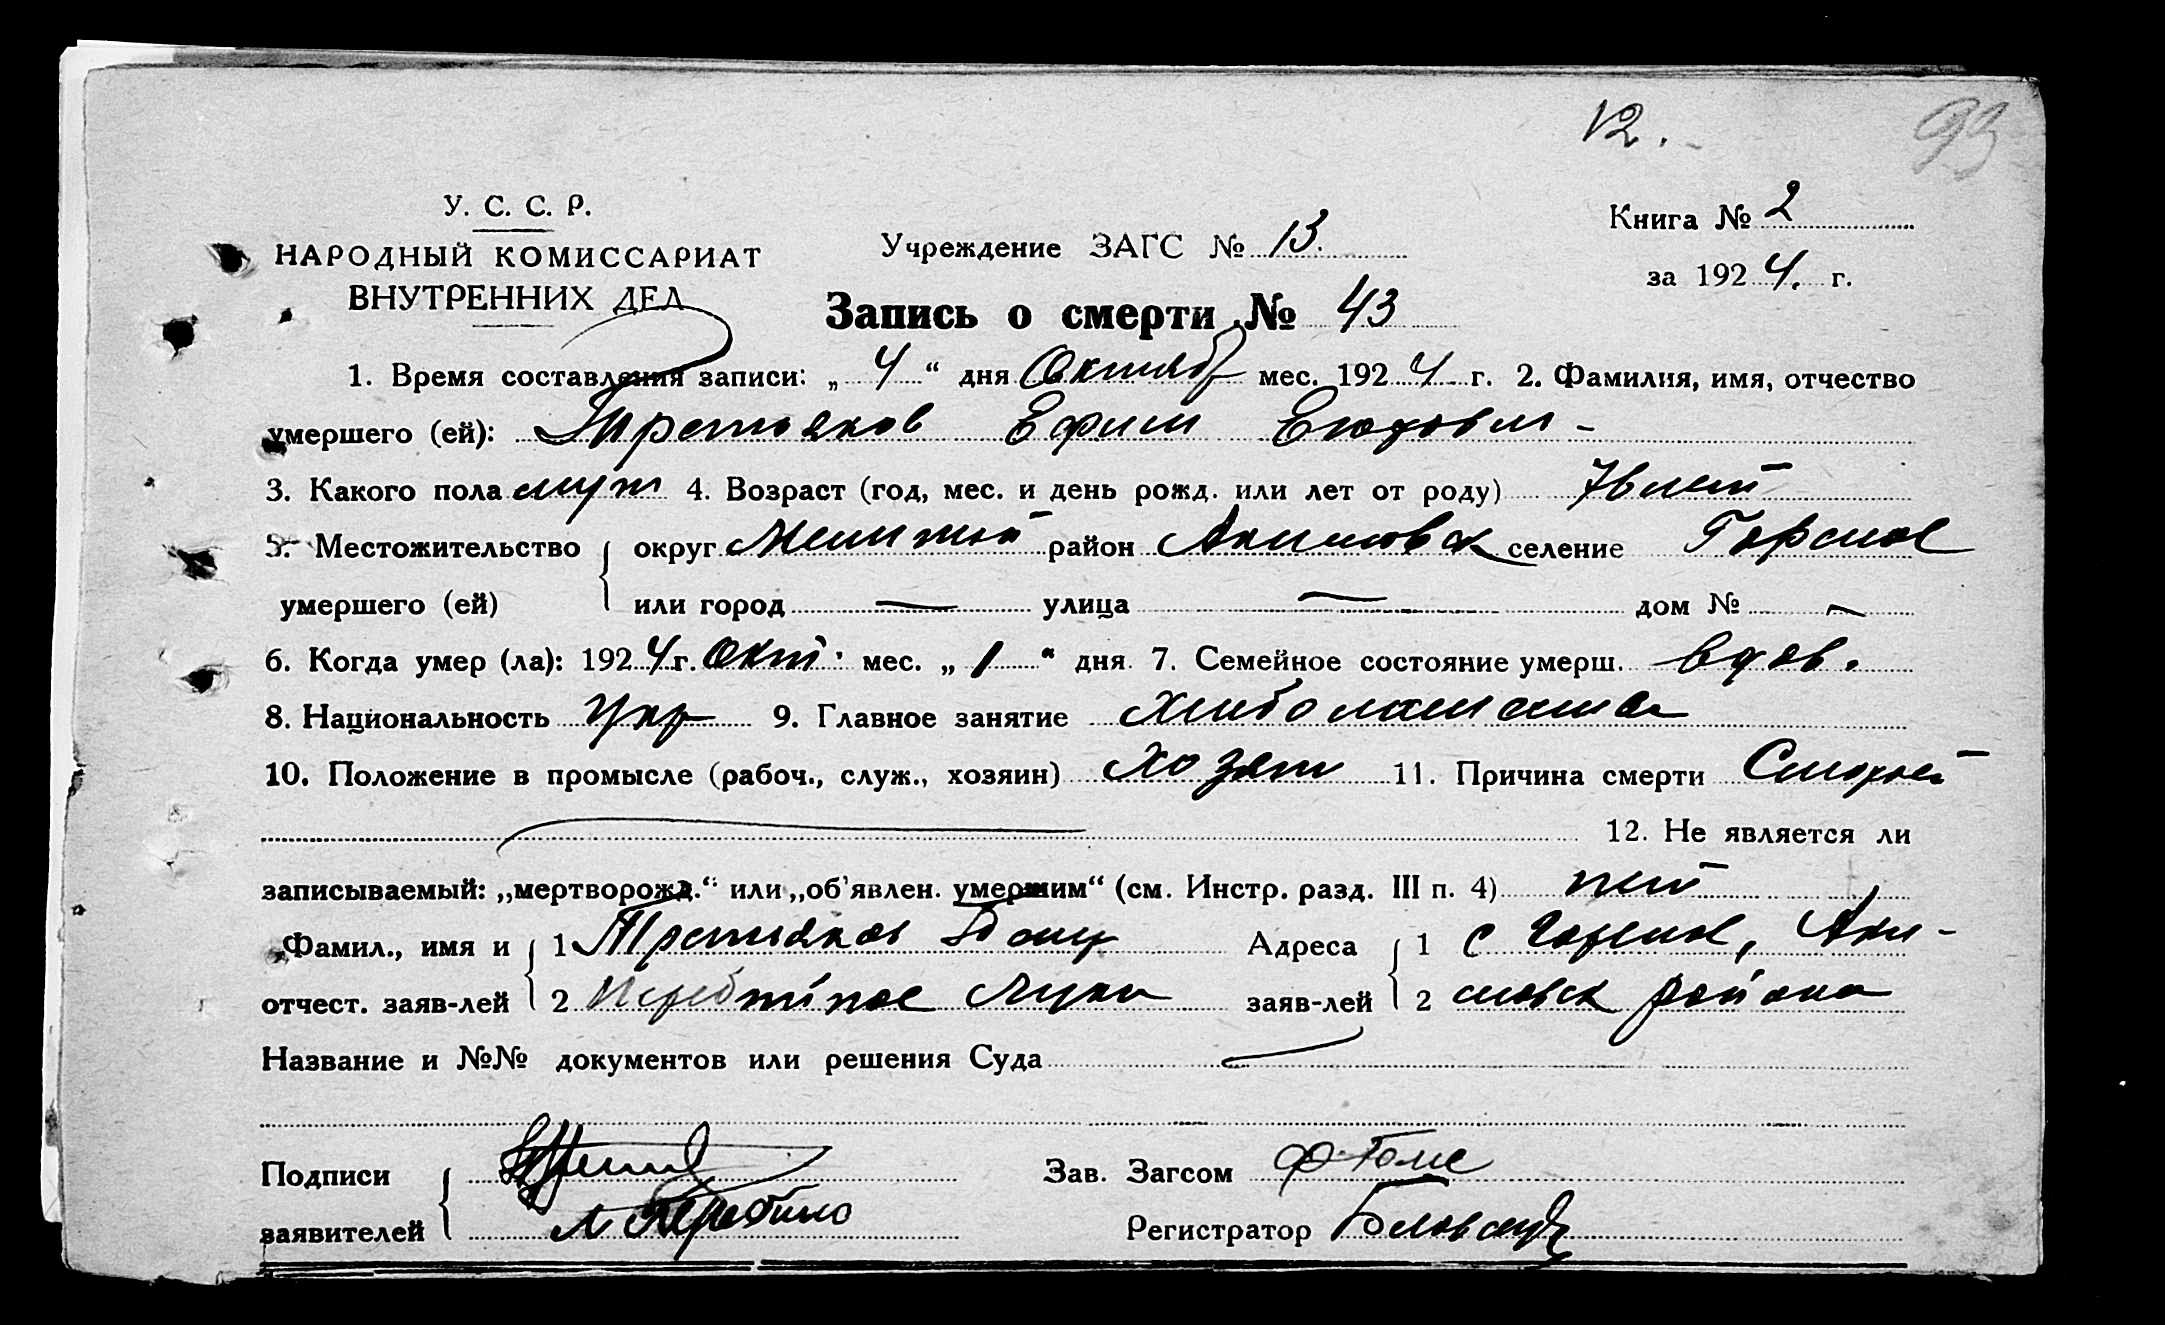 12.
93
У. С. С. Р.
НАРОДНЫЙ КОМИССАРИАТ
ВНУТРЕННИХ ДЕЛ
Учреждение ЗАГС № 13.
Книга № 2
за 1924. г.
Запись о смерти № 43
1. Время составления записи: „4“ дня Октябр мес. 1924 г. 2. Фамилия, имя, отчество
умершего (ей): Третьяков Ефим
3. Какого пола муж 4. Возраст (год, мес. и день рожд. или лет от роду) лет
5. Местожительство округ район Акимовск селение Горское
умершего (ей) или город — улица — дом № —
6. Когда умер (ла): 1924 г. Окт. мес. „1“ дня 7. Семейное состояние умерш. вдов.
8. Национальность Укр 9. Главное занятие
10. Положение в промысле (рабоч., служ., хозяин) хозяин 11. Причина смерти
12. Не является ли
записываемый: „мертворожд.“ или „об'явлен. умершим“ (см. Инстр. разд. III п. 4) нет
Фамил., имя и 1 Третьяков Адреса 1 с Горское, Аки-
отчест. заяв-лей 2 Луки заяв-лей 2 мовск района
Название и №№ документов или решения Суда
Подписи Зав. Загсом
заявителей Регистратор